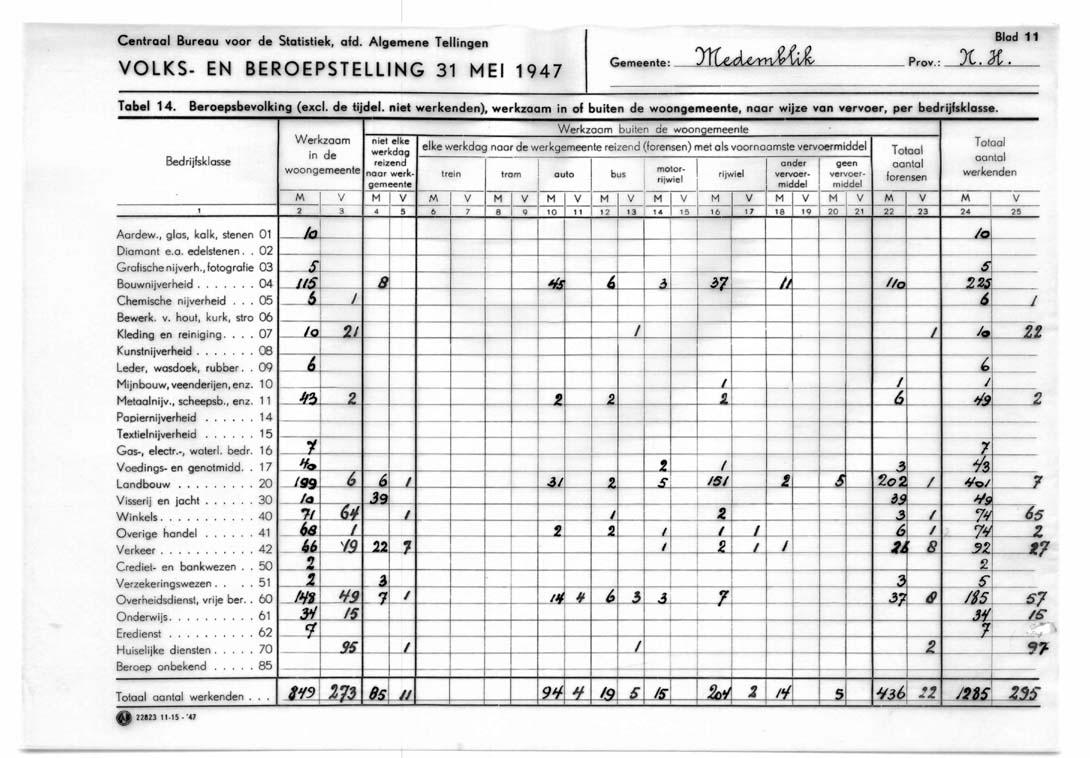 Centraal Bureau voor de Statistiek, afd. Algemene Tellingen
VOLKS- EN BEROEPSTELLING 31 MEI 1947
Gemeente: Medemblik Prov.: N. H.
Blad 11
Tabel 14. Beroepsbevolking (excl. de tijdel. niet werkenden), werkzaam in of buiten de woongemeente, naar wijze van vervoer, per bedrijfsklasse.
Bedrijfsklasse
Werkzaam in de woongemeente
Werkzaam buiten de woongemeente
niet elke werkdag reizend naar werk-gemeente
elke werkdag naar de werkgemeente reizend (forensen) met als voornaamste vervoermiddel
trein tram auto bus motor-rijwiel rijwiel ander vervoer-middel geen vervoer-middel
Totaal aantal forensen
Totaal aantal werkenden
M V M V M V M V M V M V M V M V M V M V M V M V
1 2 3 4 5 6 7 8 9 10 11 12 13 14 15 16 17 18 19 20 21 22 23 24 25
Aardew., glas, kalk, stenen 01 10 10
Diamant e.a. edelstenen . . 02
Grafische nijverh., fotografie 03 5 5
Bouwnijverheid . . . . . . . 04 115 8 45 6 3 37 11 110 225
Chemische nijverheid . . . 05 6 1 6 1
Bewerk. v. hout, kurk, stro 06
Kleding en reiniging . . . . 07 10 21 1 1 10 22
Kunstnijverheid . . . . . . . 08
Leder, wasdoek, rubber . . 09 6 6
Mijnbouw, veenderijen, enz. 10 1 1 1
Metaalnijv., scheepsb., enz. 11 43 2 2 2 2 6 49 2
Papiernijverheid . . . . . . 14
Textielnijverheid . . . . . . 15
Gas-, electr.-, waterl. bedr. 16 7 7
Voedings- en genotmidd. . 17 40 2 1 3 43
Landbouw . . . . . . . . . 20 199 6 6 1 31 2 5 151 2 5 202 1 401 7
Visserij en jacht . . . . . . 30 10 39 39 49
Winkels . . . . . . . . . . . 40 71 64 1 1 2 3 1 74 65
Overige handel . . . . . . 41 68 1 2 2 1 1 1 6 1 74 2
Verkeer . . . . . . . . . . . 42 66 19 22 7 1 2 1 1 26 8 92 27
Crediet- en bankwezen . . 50 2 2
Verzekeringswezen . . . 51 2 3 3 5
Overheidsdienst, vrije ber. . 60 148 49 7 1 14 4 6 3 3 7 37 8 185 57
Onderwijs . . . . . . . . . . 61 34 15 34 15
Eredienst . . . . . . . . . . 62 7 7
Huiselijke diensten . . . . . 70 95 1 1 2 97
Beroep onbekend . . . . . 85
Totaal aantal werkenden . . . 849 273 85 11 94 4 19 5 15 204 2 14 5 436 22 1285 295
22823 11-15 - '47